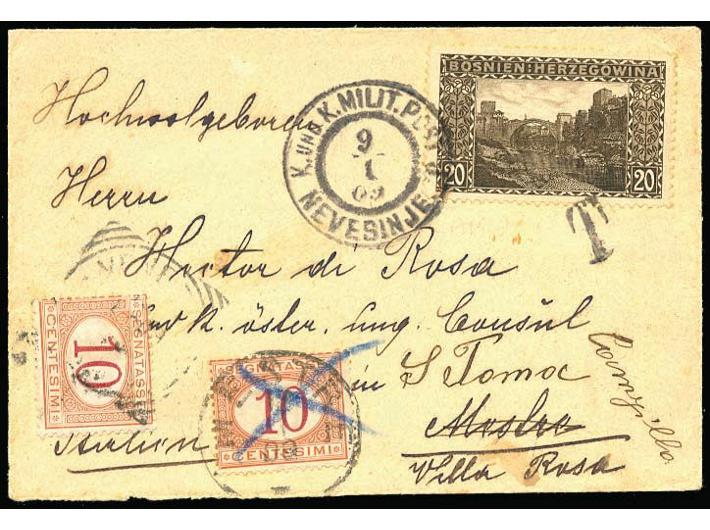 BOSNIEN·HERZEGOWINA
20 20
K. UND K. MILIT. POST
9
I
09
NEVESINJE
T
Hochwolgeboren
Herrn
Hector di Rosa
k. öster. ung. Consul
in S Tomo
Mestre
Villa Rosa
Italien
SEGNATASSE
10
CENTESIMI
SEGNATASSE
10
CENTESIMI